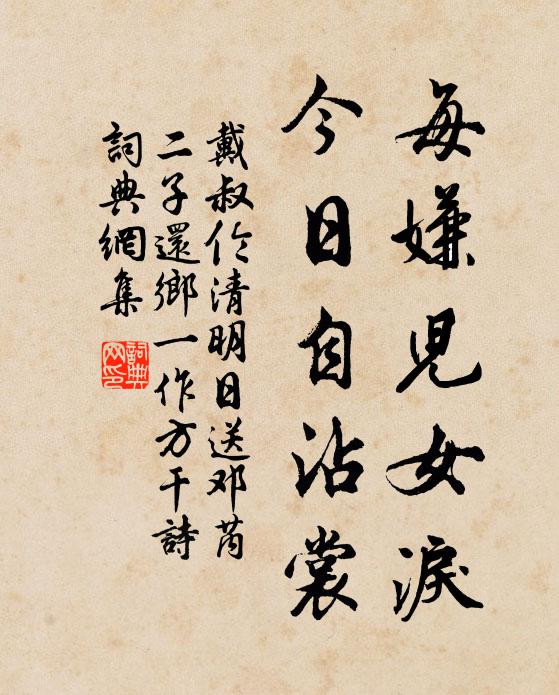 每嫌兒女淚
今日自沾裳
戴叔伦清明日送邓芮
二子還鄉一作方干詩
詞典網集
詞典网印